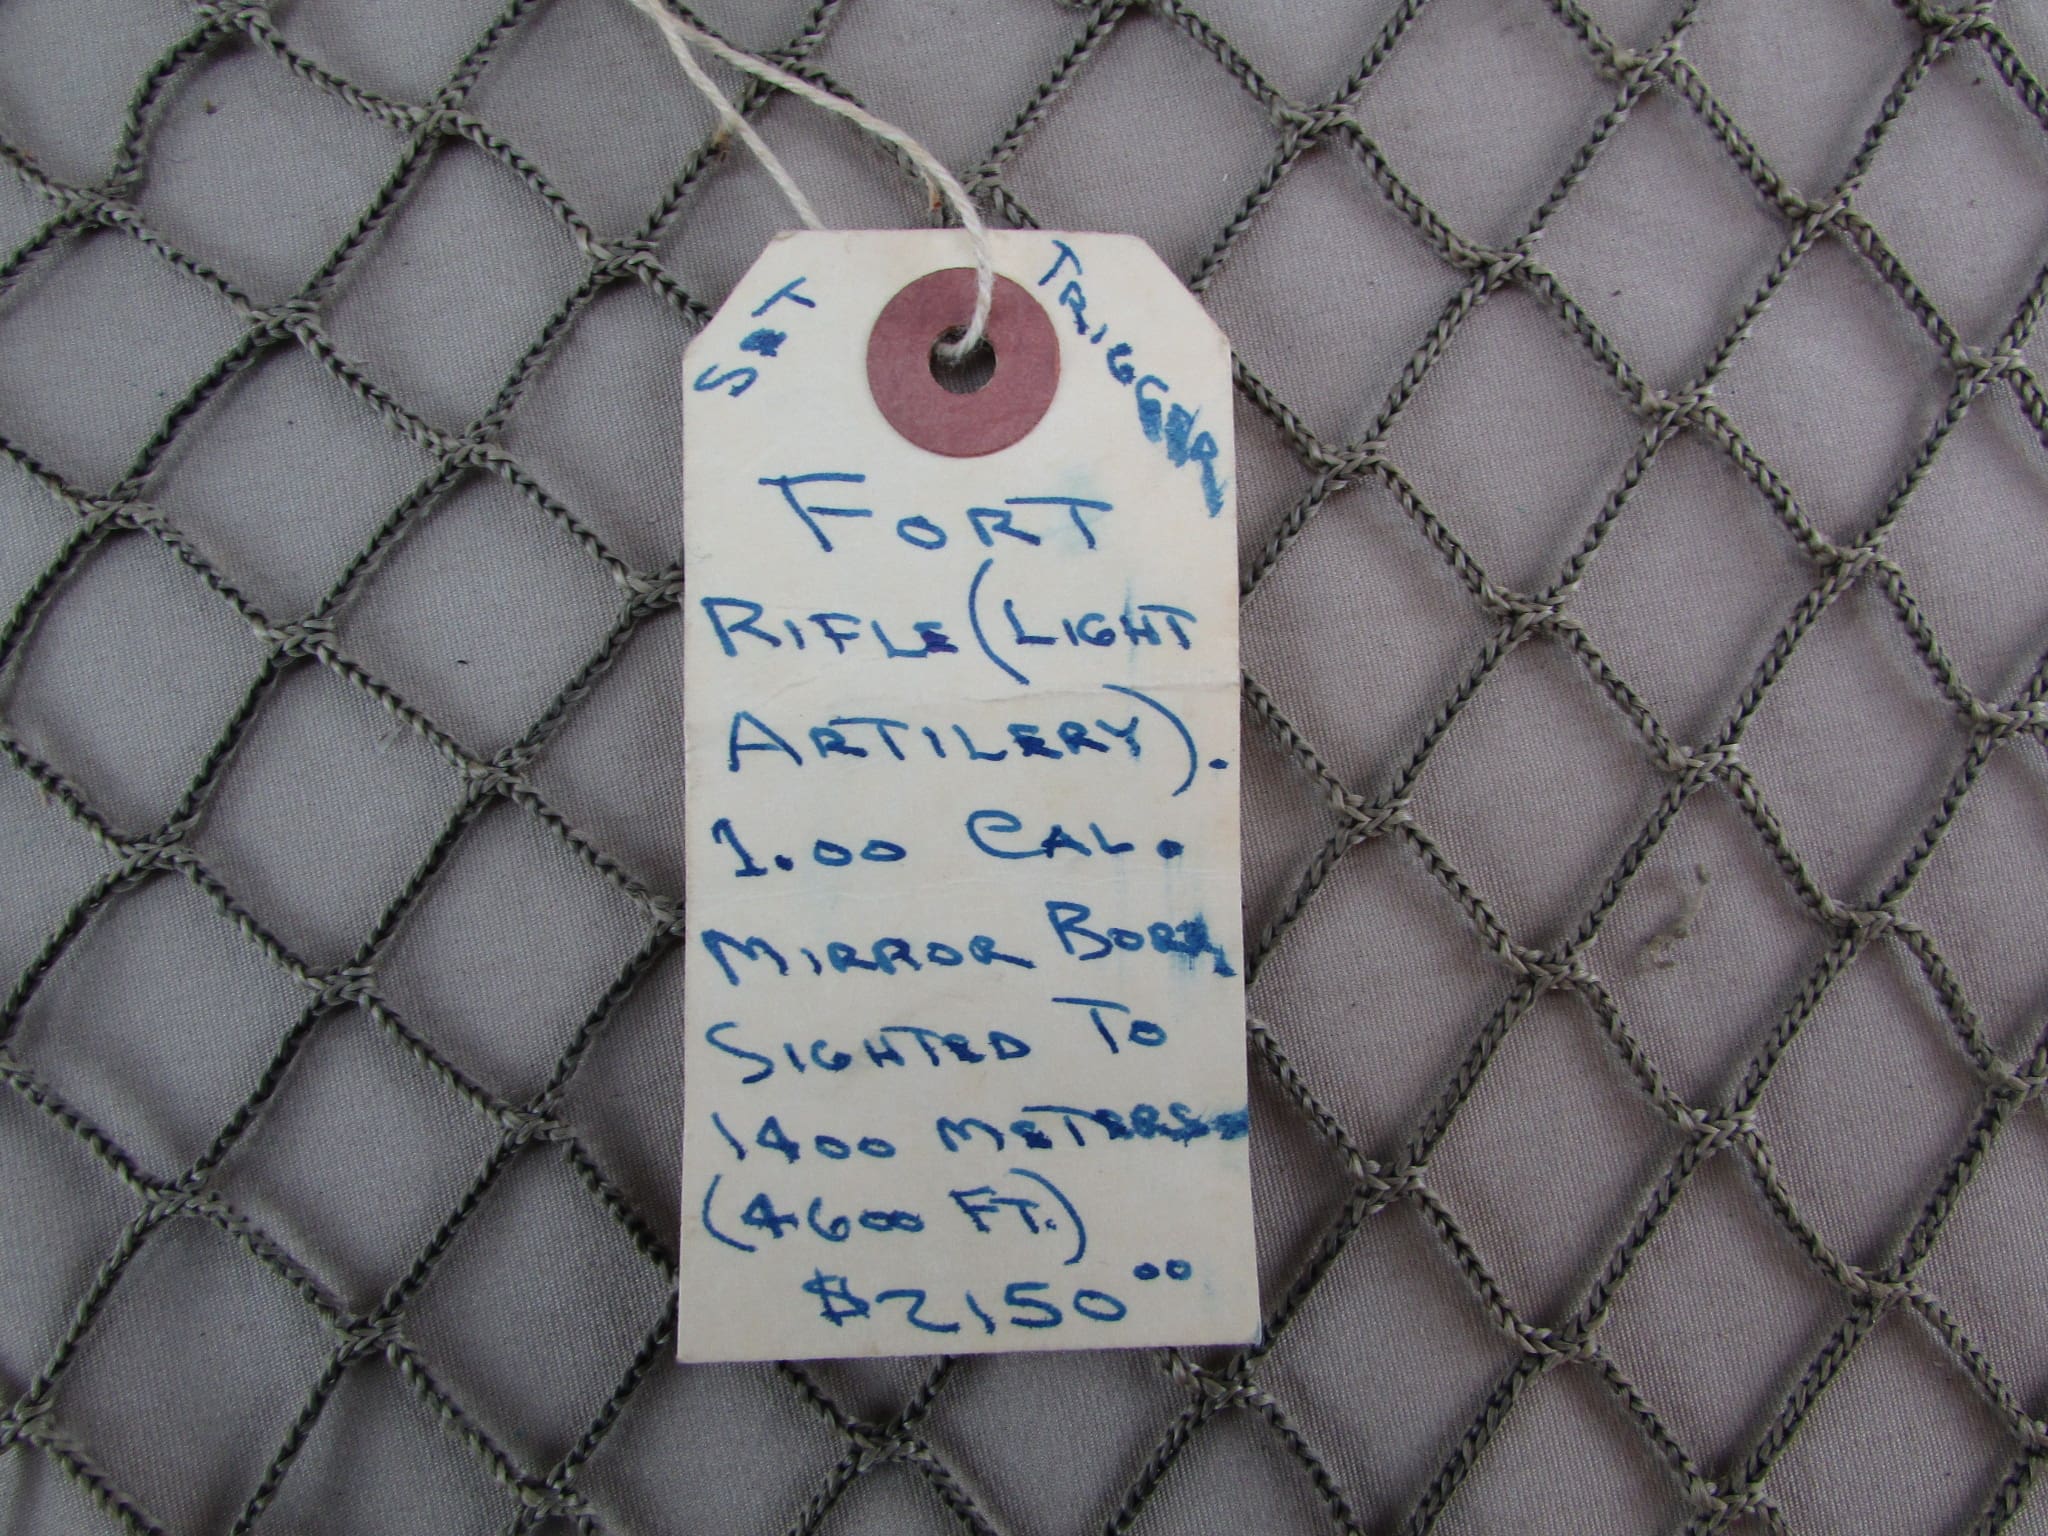 SET TRIGGER
FORT
RIFLE (LIGHT
ARTILERY).
1.00 CAL.
MIRROR BORE
SIGHTED TO
1400 METERS
(4600 FT.)
$2150⁰⁰